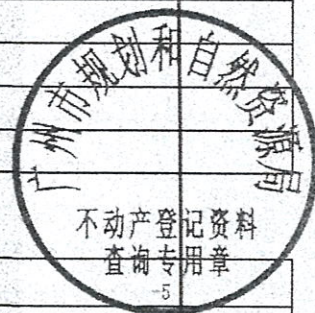 广州市规划和自然资源局
不动产登记资料
查询专用章
-5